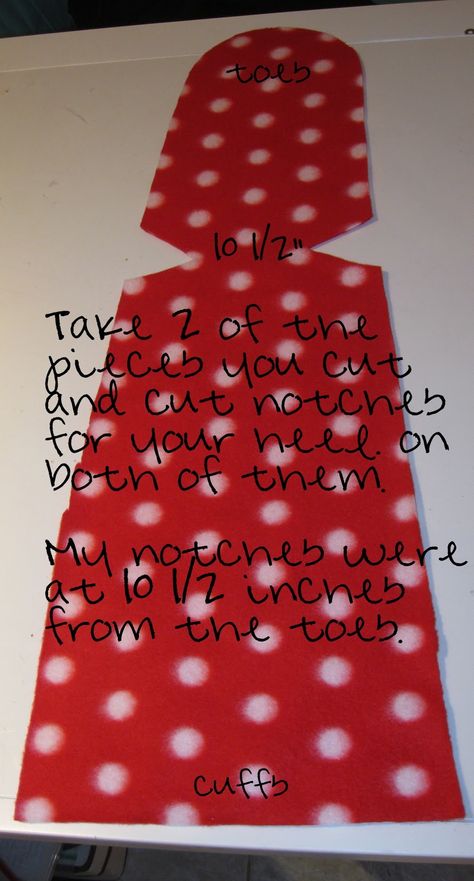 toes
10 1/2"
Take 2 of the
pieces you cut
and cut notches
for your heel on
both of them.
My notches were
at 10 1/2 inches
from the toes.
cuffs